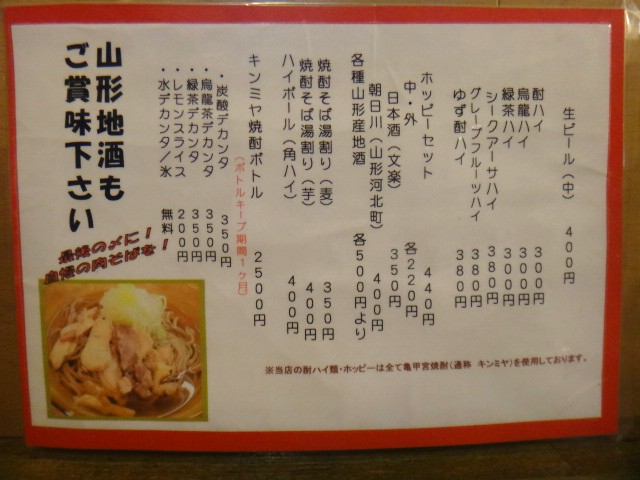 生ビール(中) 400円
酎ハイ 300円
烏龍ハイ 300円
緑茶ハイ 300円
シークアーサハイ 380円
グレープフルーツハイ 380円
ゆず酎ハイ 380円
ホッピーセット 440円
中・外 各220円
日本酒(文楽) 350円
朝日川(山形河北町) 400円
各種山形産地酒 各500円より
焼酎そば湯割り(麦) 350円
焼酎そば湯割り(芋) 400円
ハイボール(角ハイ) 400円
キンミヤ焼酎ボトル 2500円
(ボトルキープ期間1ヶ月)
・炭酸デカンタ 350円
・烏龍茶デカンタ 350円
・緑茶デカンタ 350円
・レモンスライス 200円
・水デカンタ/氷 無料
山形地酒も
ご賞味下さい
最後の〆に!
自慢の肉そばを!
※当店の酎ハイ類・ホッピーは全て亀甲宮焼酎(通称 キンミヤ)を使用しております。